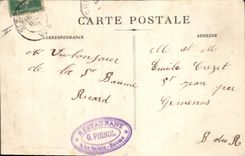 CARTE POSTALE
CORRESPONDANCE
ADRESSE
Un bonjour
de la Ste Baume
Ricard
M et M
Emile Tuzet
St Jean par
Gemenos
B du R
RESTAURANT
G. PIGNOL